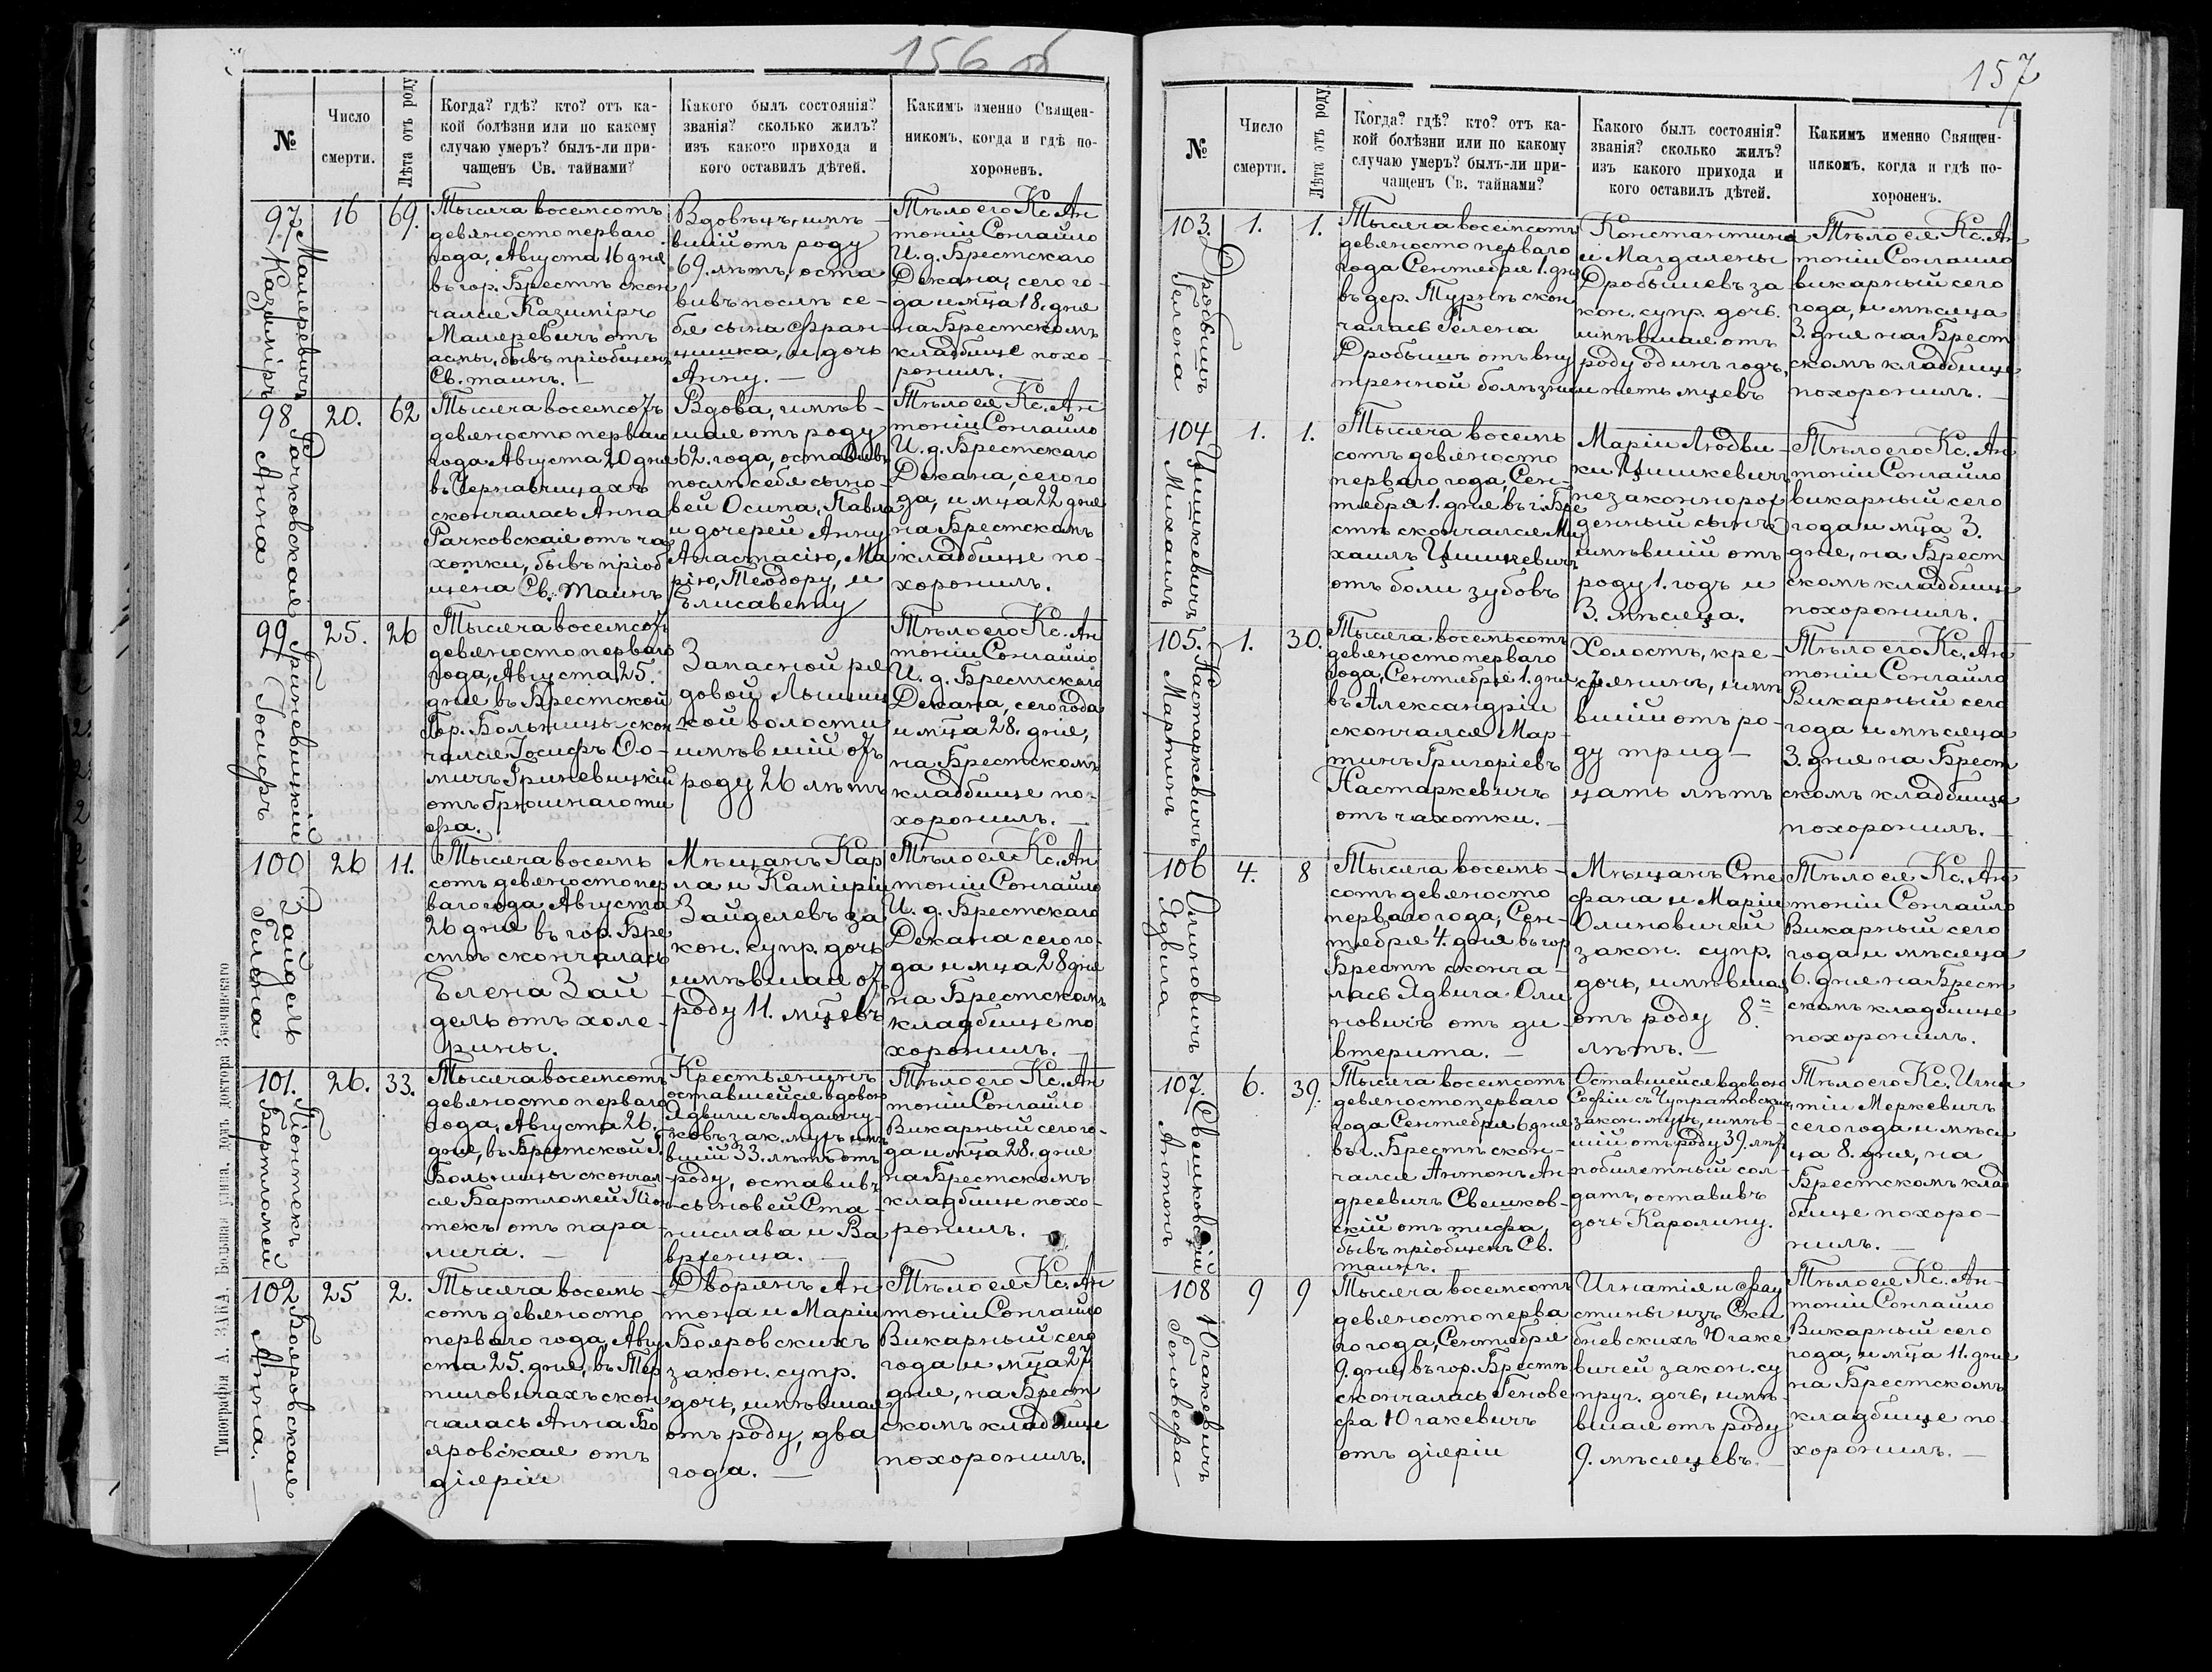 156 об
№
Число
смерти.
Лѣта отъ роду
Когда? гдѣ? кто? отъ ка-
кой болѣзни или по какому
случаю умеръ? былъ-ли при-
чащенъ Св. тайнами?
Какого былъ состоянія?
званія? сколько жилъ?
изъ какого прихода и
кого оставилъ дѣтей.
Какимъ именно Священ-
никомъ, когда и гдѣ по-
хороненъ.
97.
Маляревичъ
Казиміръ
16
69.
Тысяча восемсотъ
девяносто перваго
года, Августа 16 дня
въ гор. Брестѣ скон
чался Казиміръ
Маляревичъ отъ
асмы, бывъ пріобщенъ
Св. таинъ. —
Вдовецъ, имѣ-
вшій отъ роду
69. лѣтъ, оста
вивъ послѣ се-
бя сына Фран-
цишка, и дочь
Анну. —
Тѣло его Кс. Ан
тоній Сонгайло
И. д. Брестскаго
Декана, сего го-
да и мца 18. дня
на Брестскомъ
кладбище похо-
ронилъ. —
98
Рачковская
Анна
20.
62
Тысяча восемсотъ
девяносто перваго
года Августа 20 дня
въ Чернавчицахъ
скончалась Анна
Рачковская отъ ча
хотки, бывъ пріоб
щена Св. Таинъ
Вдова, имѣв-
шая отъ роду
62. года, оставивъ
послѣ себя сыно-
вей Осипа, Павла
и дочерей Анну
Анастасію, Ма
рію, Теодору, и
Елисавету
Тѣло ея Кс. Ан
тоній Сонгайло
И. д. Брестскаго
Декана, сего го
да, и мца 22 дня
на Брестскомъ
кладбище по-
хоронилъ.
99
Гриневицкій
Іосифъ
25.
26
Тысяча восемсотъ
девяносто перваго
года, Августа 25.
дня въ Брестской
Гор. Больницы скон
чался Іосифъ Фо-
мичъ Гриневицкій
отъ брюшнаго ти
фа.
Запасной ря
довой Лышиц
кой волости
имѣвшій отъ
роду 26 лѣтъ
Тѣло его Кс. Ан
тоній Сонгайло
И. д. Брестскаго
Декана, сего года
и мца 28. дня,
на Брестскомъ
кладбище по-
хоронилъ. —
100
Зайдель
Гелена
26
11.
Тысяча восемь
сотъ девяносто пер
ваго года Августа
26 дня въ гор. Бре
стѣ скончалась
Елена Зай
дель отъ холе-
рины.
Мѣщанъ Кар
ла и Каміріи
Зайделевъ за
кон. супр. дочь
имѣвшая отъ
роду 11. мцевъ
Тѣло ея Кс. Ан
тоній Сонгайло
И. д. Брестскаго
Декана сего го-
да и мца 28 дня
на Брестскомъ
кладбище по
хоронилъ. —
101.
Піонтекъ
Бартломей
26.
33.
Тысяча восемсотъ
девяносто перваго
года, Августа 26.
дня, въ Брестской Г.
Больницы скончал
ся Бартломей Піон
текъ отъ пара-
лича. —
Крестьянинъ
оставшейся вдовою
Ядвиги съ Адамчу-
ковъ зак. мужъ имѣ
вшій 33. лѣтъ отъ
роду, оставивъ
сыновей Ста-
нислава и Ва
вренца. —
Тѣло его Кс. Ан
тоній Сонгайло
Викарный сего го-
да и мца 28. дня
на Брестскомъ
кладбище похо-
ронилъ.
102
Бояровская
Анна.
25
2.
Тысяча восемь-
сотъ девяносто
перваго года, Авгу
ста 25. дня, въ Тер
пиловичахъ скон
чалась Анна Бо
яровская отъ
діяріи
Дворянъ Ан
тона и Маріи
Бояровскихъ
закон. супр.
дочь, имѣвшая
отъ роду, два
года. —
Тѣло ея Кс. Ан
тоній Сонгайло
Викарный сего
года и мца 27
дня, на Брест
скомъ кладбище
похоронилъ.
Типографія А. ЗАКА, Большая улица, домъ доктора Значинскаго
157
№
Число
смерти.
Лѣта отъ роду
Когда? гдѣ? кто? отъ ка-
кой болѣзни или по какому
случаю умеръ? былъ-ли при-
чащенъ Св. тайнами?
Какого былъ состоянія?
званія? сколько жилъ?
изъ какого прихода и
кого оставилъ дѣтей.
Какимъ именно Священ-
никомъ, когда и гдѣ по-
хороненъ.
103.
Дробышъ
Гелена
1.
1.
Тысяча восемсотъ
девяносто перваго
года Сентября 1. дня
въ дер. Турнѣ скон
чалась Гелена
Дробышъ отъ вну
тренной болѣзни
Константина
и Магдалены
Дробышевъ за
кон. супр. дочь.
имѣвшая отъ
роду одинъ годъ,
и пять мцевъ
Тѣло ея Кс. Ан
тоній Сонгайло
викарный сего
года, и мѣсяца
3. дня на Брест
скомъ кладбище
похоронилъ. —
104
Цишкевичъ
Михаилъ
1.
1.
Тысяча восемь
сотъ девяносто
перваго года, Сен-
тября 1. дня въ г. Бре
стѣ скончался Ми
хаилъ Цишкевичъ
отъ боли зубовъ
Маріи Людви-
ки Цишкевичъ
незаконнорож
денный сынъ
имѣвшій отъ
роду 1. годъ и
3. мѣсяца.
Тѣло его Кс. Ан
тоній Сонгайло
викарный сего
года и мца 3.
дня, на Брест
скомъ кладбище
похоронилъ.
105.
Настаркевичъ
Мартинъ
1.
30.
Тысяча восемьсотъ
девяносто перваго
года, Сентября 1. дня
въ Александріи
скончался Мар-
тинъ Григоріевъ
Настаркевичъ
отъ чахотки. —
Холостъ, кре-
стьянинъ, имѣ
вшій отъ ро-
ду трид-
цать лѣтъ
Тѣло его Кс. Ан
тоній Сонгайло
Викарный сего
года и мѣсяца
3. дня на Брест
скомъ кладбище
похоронилъ. —
106
Олиновичъ
Ядвига
4.
8
Тысяча восемь-
сотъ девяносто
перваго года, Сен-
тября 4. дня въ гор
Брестѣ сконча-
лась Ядвига Оли
новичъ отъ ди-
втерита. —
Мѣщанъ Сте
фана и Маріи
Олиновичей
закон. супр.
дочь, имѣвшая
отъ роду 8.
лѣтъ. —
Тѣло ея Кс. Ан
тоній Сонгайло
Викарный сего
года и мѣсяца
6. дня на Брест
скомъ кладбище
похоронилъ.
107.
Свешковскій
Антонъ
6.
39.
Тысяча восемсотъ
девяносто перваго
года Сентября 6 дня
въ г. Брестѣ скон-
чался Антонъ Ан
дреевичъ Свешков-
скій отъ тифа,
бывъ пріобщенъ Св.
таинъ.
Оставшейся вдовою
Софіи съ Чупратовскихъ
закон. мужъ, имѣв-
шій отъ роду 39. лѣтъ
побилетный сол-
датъ, оставивъ
дочь Каролину.
Тѣло его Кс. Игна
тій Меркевичъ
сего года и мѣся
ца 8. дня, на
Брестскомъ клад
бище похоро-
нилъ. —
108
Югакевичъ
Геновефа
9
9
Тысяча восемсотъ
девяносто перва
го года, Сентября
9. дня, въ гор. Брестѣ
скончалась Генове
фа Югакевичъ
отъ діяріи
Игнатія и Фау
стины изъ Ски
бневскихъ Югаке
вичей закон. су
пруг. дочь, имѣ
вшая отъ роду
9. мѣсяцевъ. —
Тѣло ея Кс. Ан-
тоній Сонгайло
Викарный сего
года, и мца 11. дня
на Брестскомъ
кладбище по-
хоронилъ. —